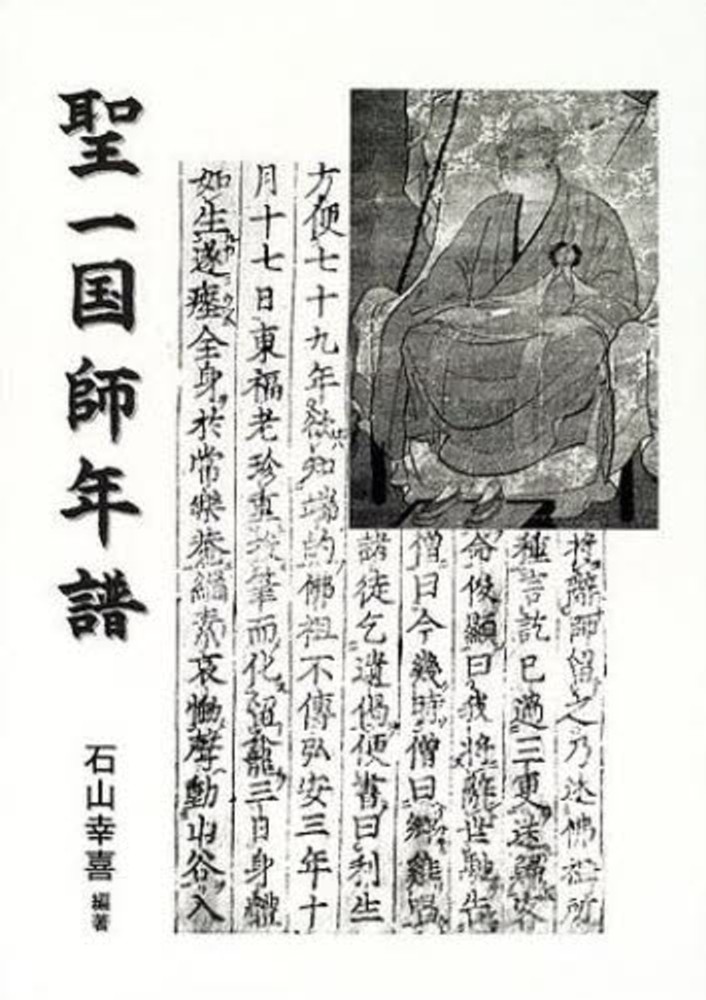 聖一国師年譜
石山幸喜 編著
將辭師留之乃述佛祖所
種言訖已過三更送歸
命俊顯曰我將辭世馳告
僧曰今幾時僧曰雞唱
諸徒乞遺偈便書曰利生
方便七十九年欲知端的佛祖不傳弘安三年十
月十七日東福老珍重投筆而化留龕三日身體
如生遂瘞全身於常樂菴緇素哀慟聲動山谷入